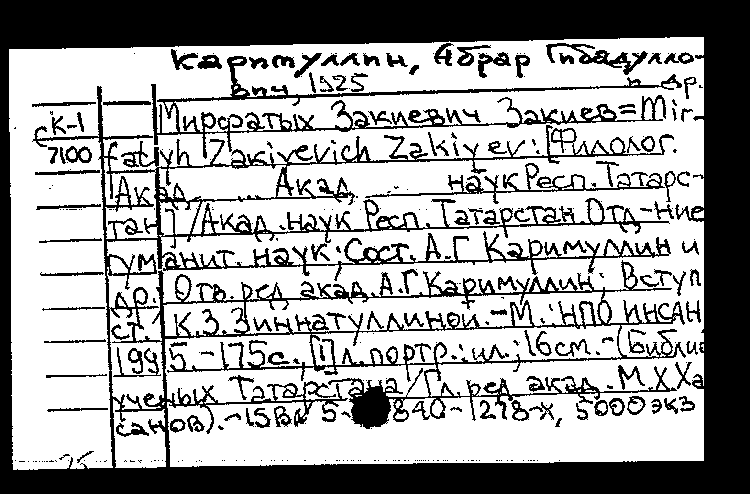 Каримуллин, Абрар Гибадулло-
вич, 1925 и др.
СК-1 Мирфатых Закиевич Закиев=Mir-
7100 fatyh Zakiyevich Zakiyev: [Филолог.
Акад. ... Акад. ... наук Респ. Татарс-
тан] / Акад. наук Респ. Татарстан. Отд-ние
гуманит. наук; Сост. А.Г. Каримуллин и
др.; Отв. ред. акад. А.Г. Каримуллин; Вступ.
ст. К.З. Зиннатуллиной. - М.: НПО ИНСАН
1995. - 175 с., [1] л. портр.: ил.; 16 см. - (Библи
ученых Татарстана / Гл. ред. акад. М.Х. Ха
санов). - ISBN 5- 840-1278-X, 5000 экз